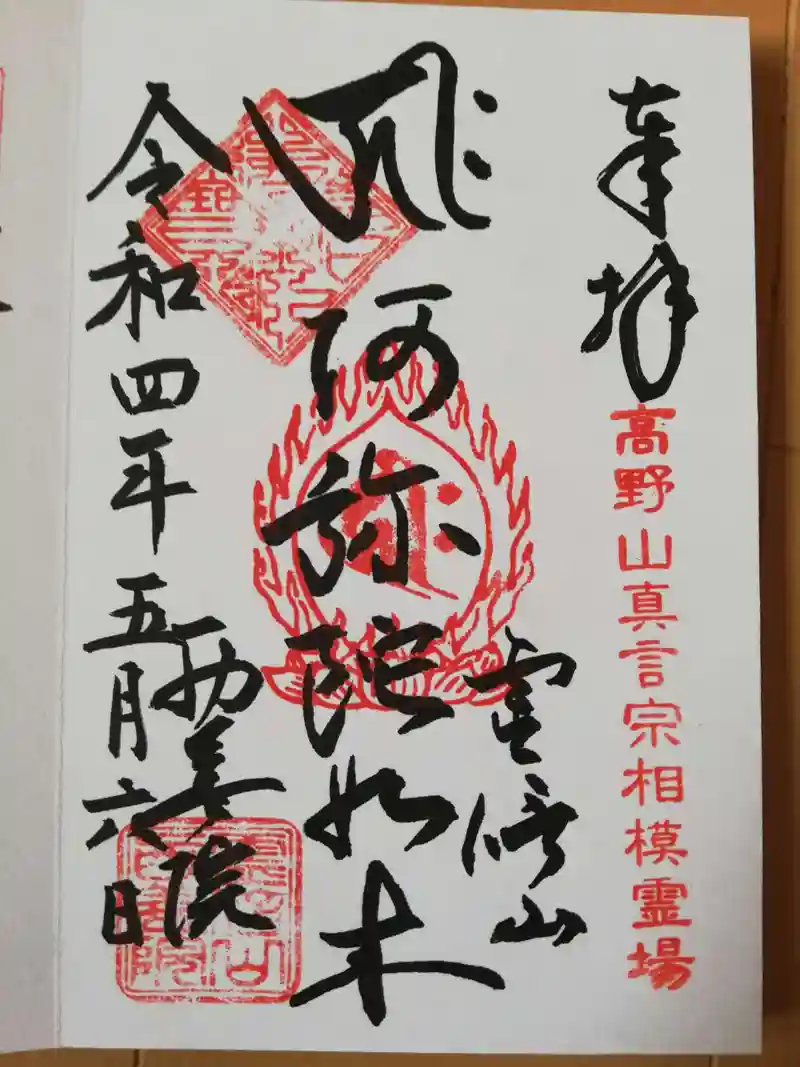 奉拝
高野山真言宗相模霊場
阿弥陀如来
山
善院
令和四年五月六日